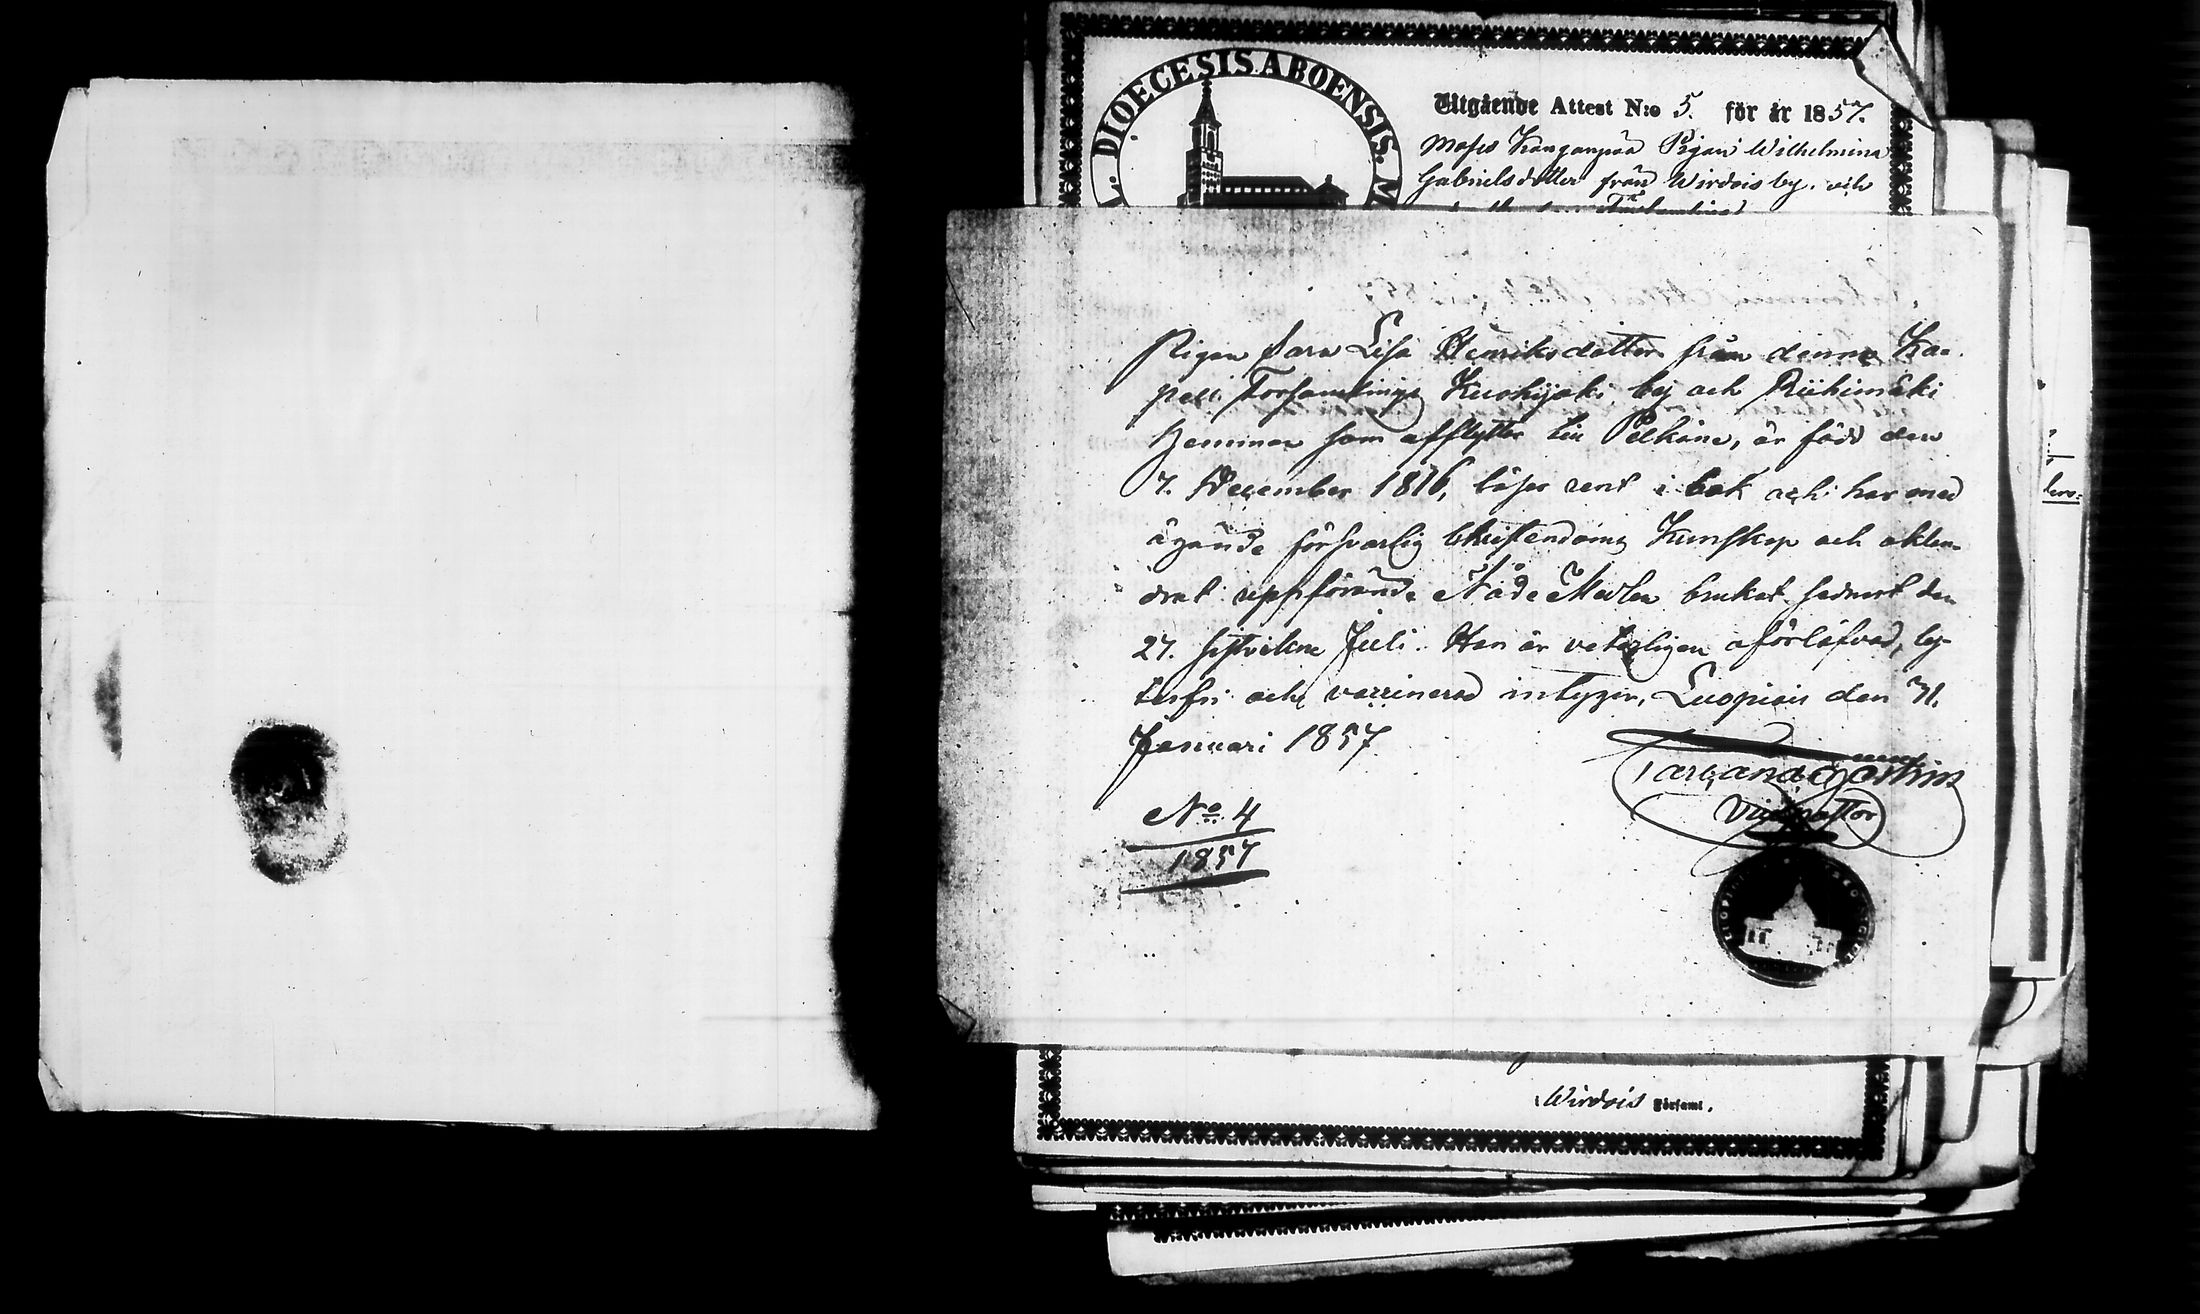 DIOECESIS ABOENSIS. M
Utgående Attest N:o 5. för år 1857.
Moses Kanganpää Pigan Wilhelmina
Gabrielsdotter från Wirdois by. och
Pigan Sara Lisa Henriksdotter från denna Ka-
pell Församlings Kuohijoki by och Riihimäki
hemman som afflyttar till Pelkäne, är född den
7. December 1816, läser rent i bok och har med
ägande försvarlig Christendoms Kunskap och okland-
drat uppförande Nåde Medlen brukat sednast den
27. sistvikne Juli. Hon är veterligen oförlofvad, ly-
tesfri och vaccinerad intygar, Luopiois den 31.
Januari 1857
Vice pastor
No 4
1857
Wirdois Församl.